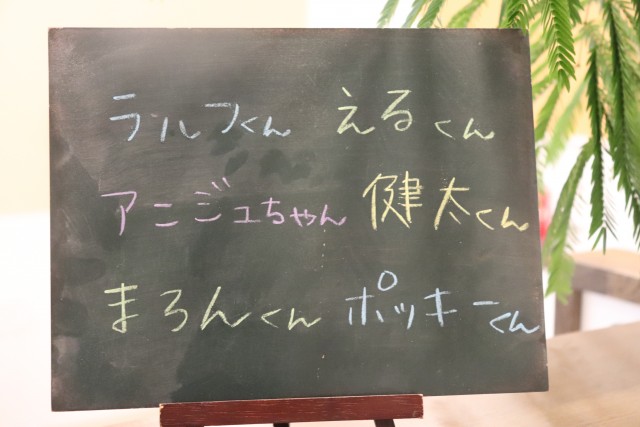 ラルフくん えるくん
アンジュちゃん 健太くん
まろんくん ポッキーくん